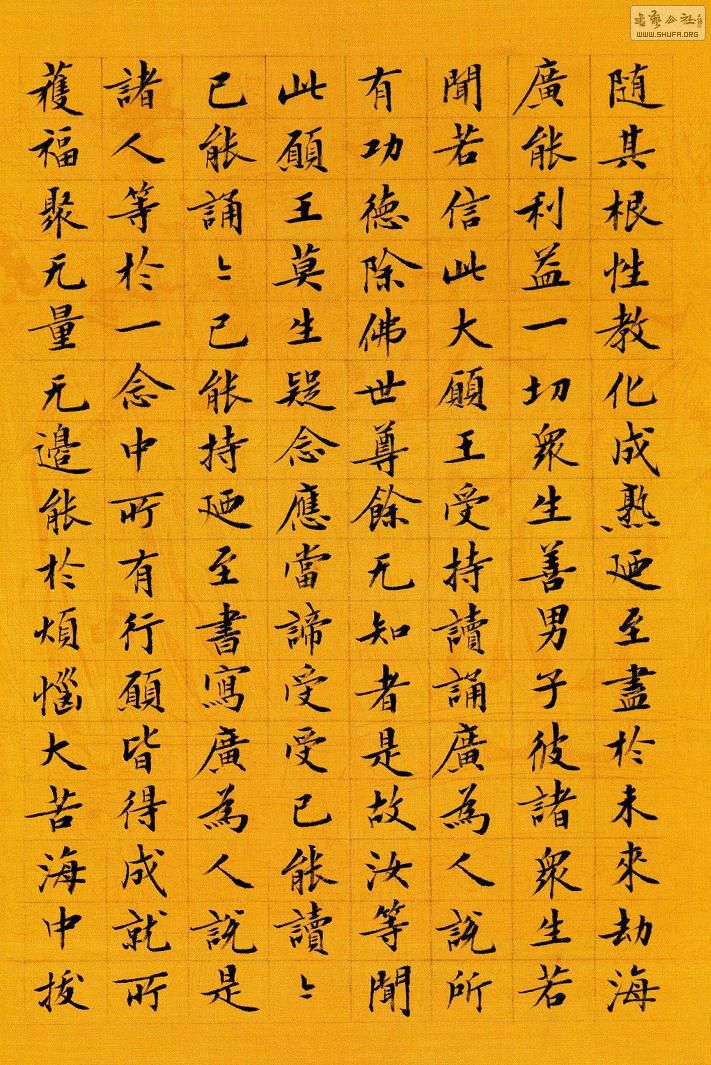 随其根性教化成熟廼至盡於未來劫海
廣能利益一切衆生善男子彼諸衆生若
聞若信此大願王受持讀誦廣為人說所
有功德除佛世尊餘无知者是故汝等聞
此願王莫生疑念應當諦受受已能讀〻
已能誦〻已能持廼至書寫廣為人說是
諸人等於一念中所有行願皆得成就所
獲福聚无量无邊能於煩惱大苦海中拔
書藝公社
WWW.SHUFA.ORG